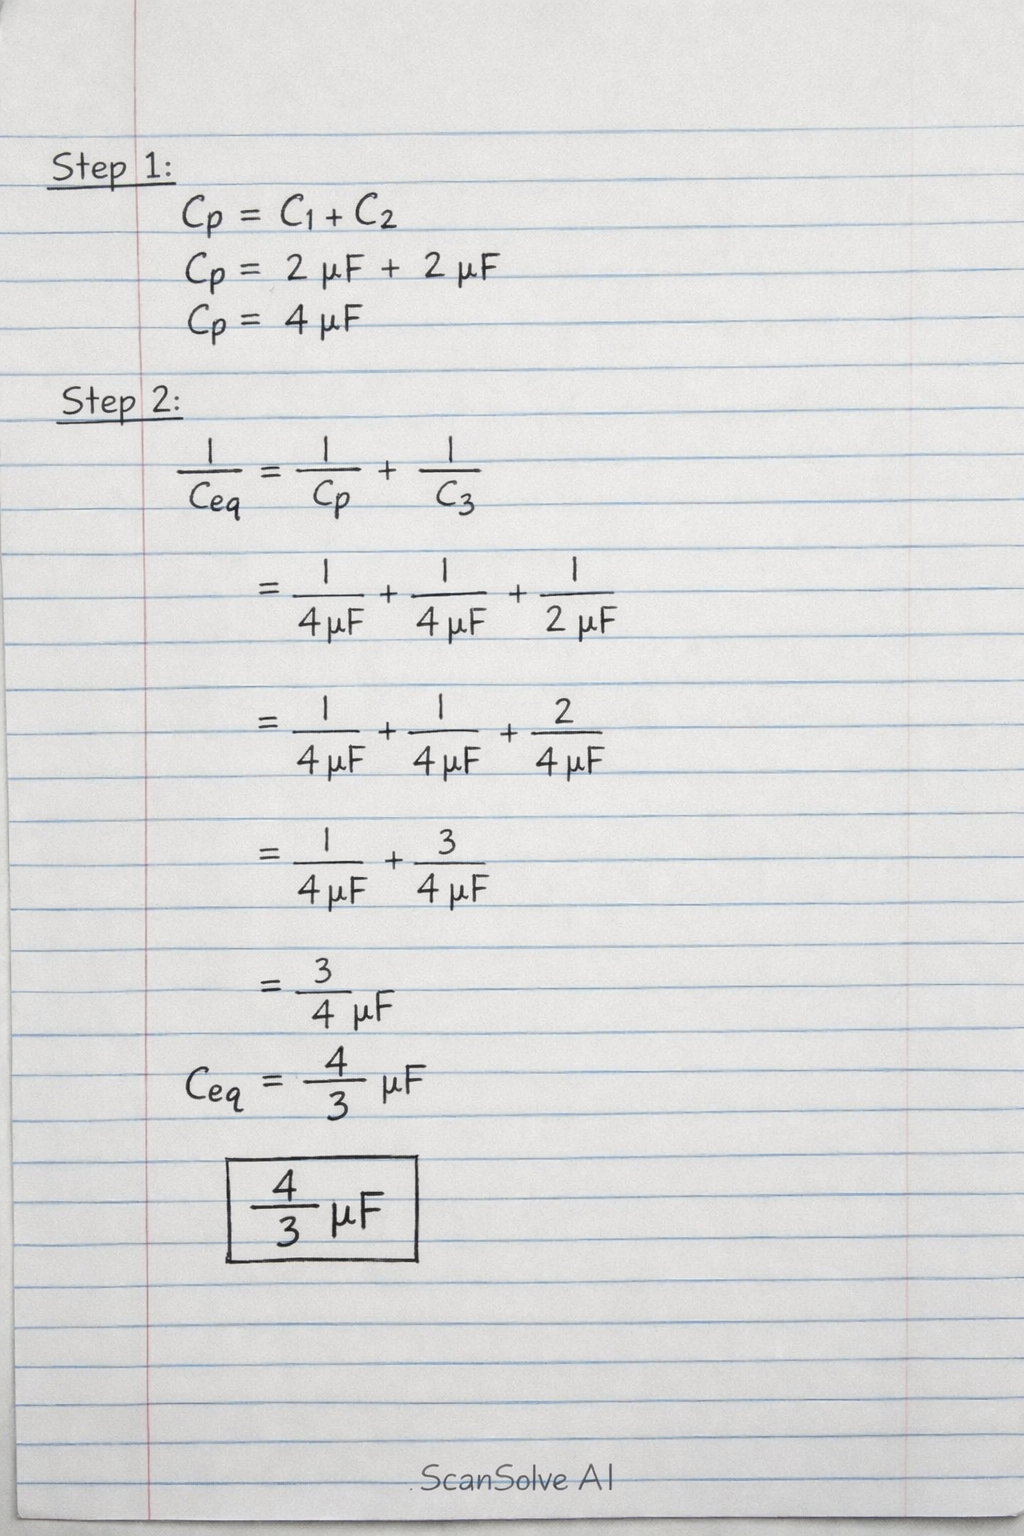 Step 1:
Cp = C1 + C2
Cp = 2 μF + 2 μF
Cp = 4 μF
Step 2:
1/Ceq = 1/Cp + 1/C3
= 1/4 μF + 1/4 μF + 1/2 μF
= 1/4 μF + 1/4 μF + 2/4 μF
= 1/4 μF + 3/4 μF
= 3/4 μF
Ceq = 4/3 μF
4/3 μF
ScanSolve AI